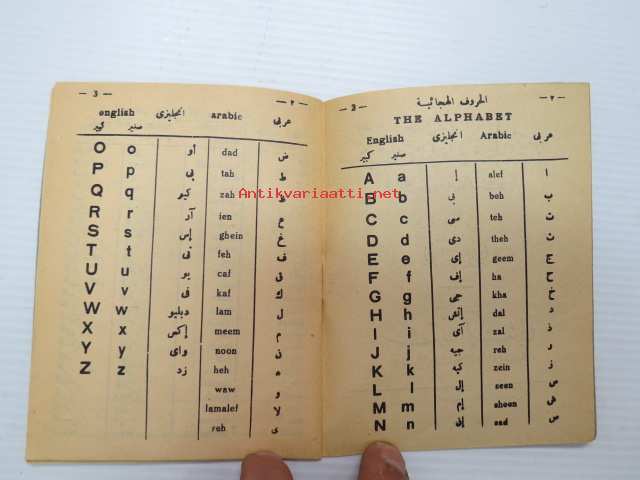 — 3 — — ٣ —
english انجليزى arabic عربى
كبير صغير
O o أو dad ض
P p بى tah ط
Q q كيو zah ظ
R r آر ien ع
S s إس ghein غ
T t تى feh ف
U u يو caf ق
V v فى kaf ك
W w دبليو lam ل
X x إكس meem م
Y y واى noon ن
Z z زد heh ه
waw و
lamalef لا
reh ى
— 2 — الحروف الهجائية — ٢ —
THE ALPHABET
English انجليزى Arabic عربى
كبير صغير
A a إ alef ا
B b بى beh ب
C c سى teh ت
D d دى theh ث
E e إى geem ج
F f إف ha ح
G g جى kha خ
H h إتش dal د
I i آى zal ذ
J j جيه reh ر
K k كيه zein ز
L l إل seen س
M m إم sheen ش
N n إن sad ص
Antikvariaatti.net